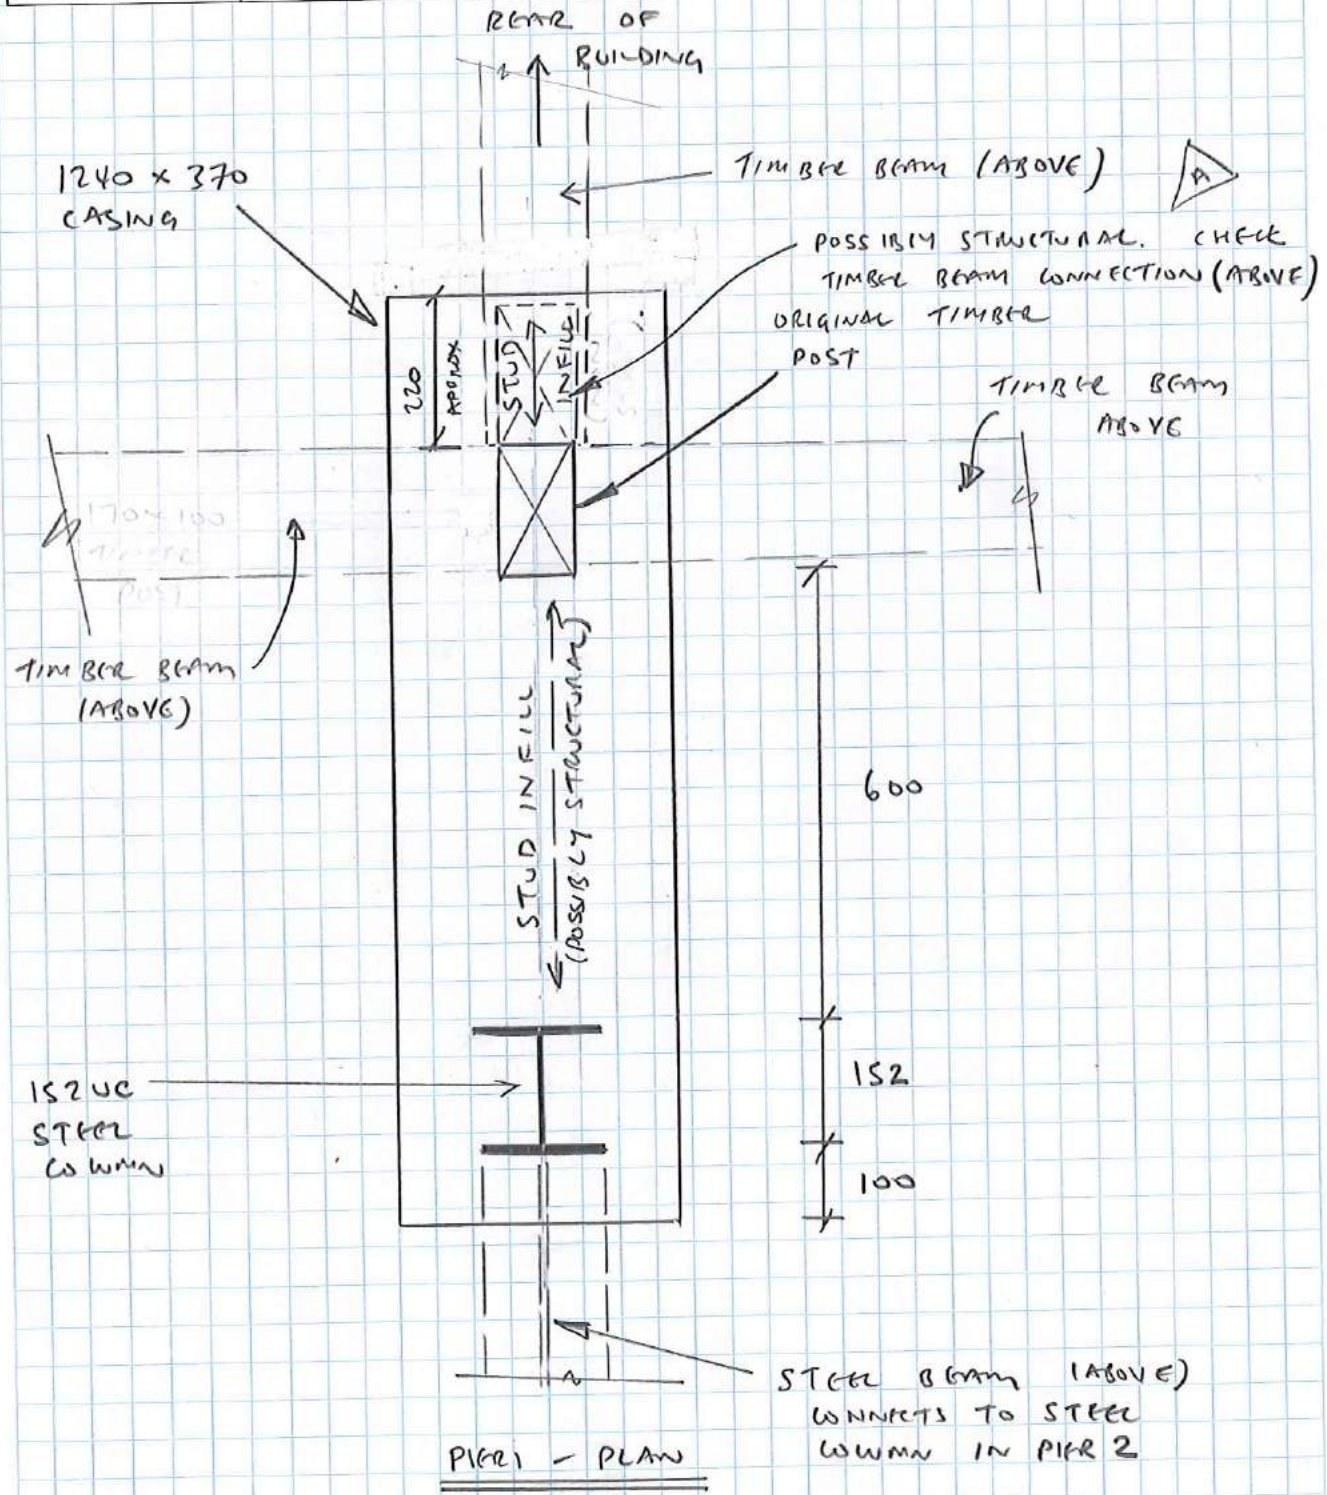 REAR OF
BUILDING
1240 x 370
CASING
TIMBER BEAM (ABOVE)
A
POSSIBLY STRUCTURAL. CHECK
TIMBER BEAM CONNECTION (ABOVE)
ORIGINAL TIMBER
POST
TIMBER BEAM
ABOVE
220
APPROX
STUD
INFILL
170 x 100
TIMBER
POST
TIMBER BEAM
(ABOVE)
STUD INFILL
(POSSIBLY STRUCTURAL)
600
152
100
152 UC
STEEL
COLUMN
STEEL BEAM (ABOVE)
CONNECTS TO STEEL
COLUMN IN PIER 2
PIER 1 - PLAN